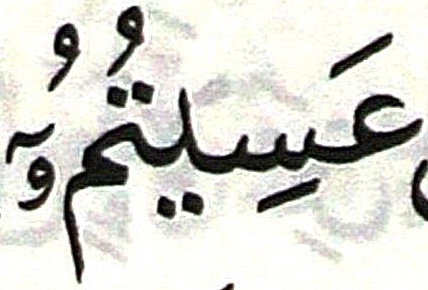 عَسِيتُمُۥٓ